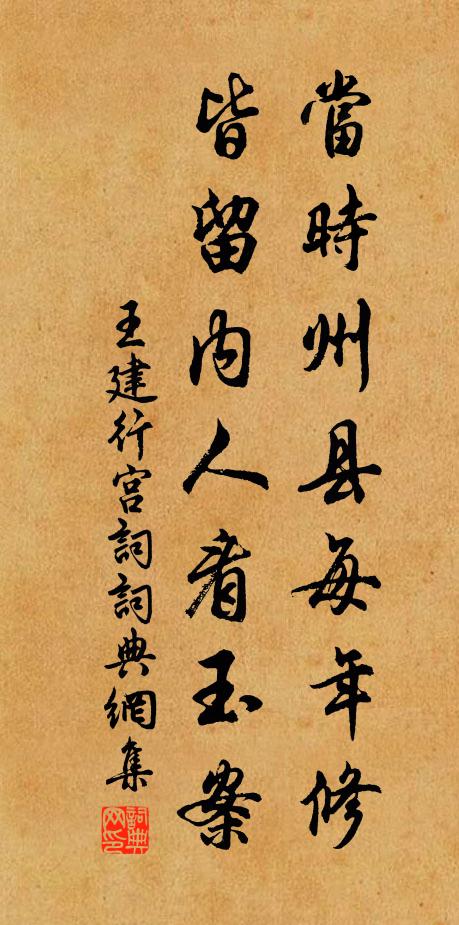 當時州县每年修
皆留内人看玉案
王建行宮詞詞典網集
詞典网印